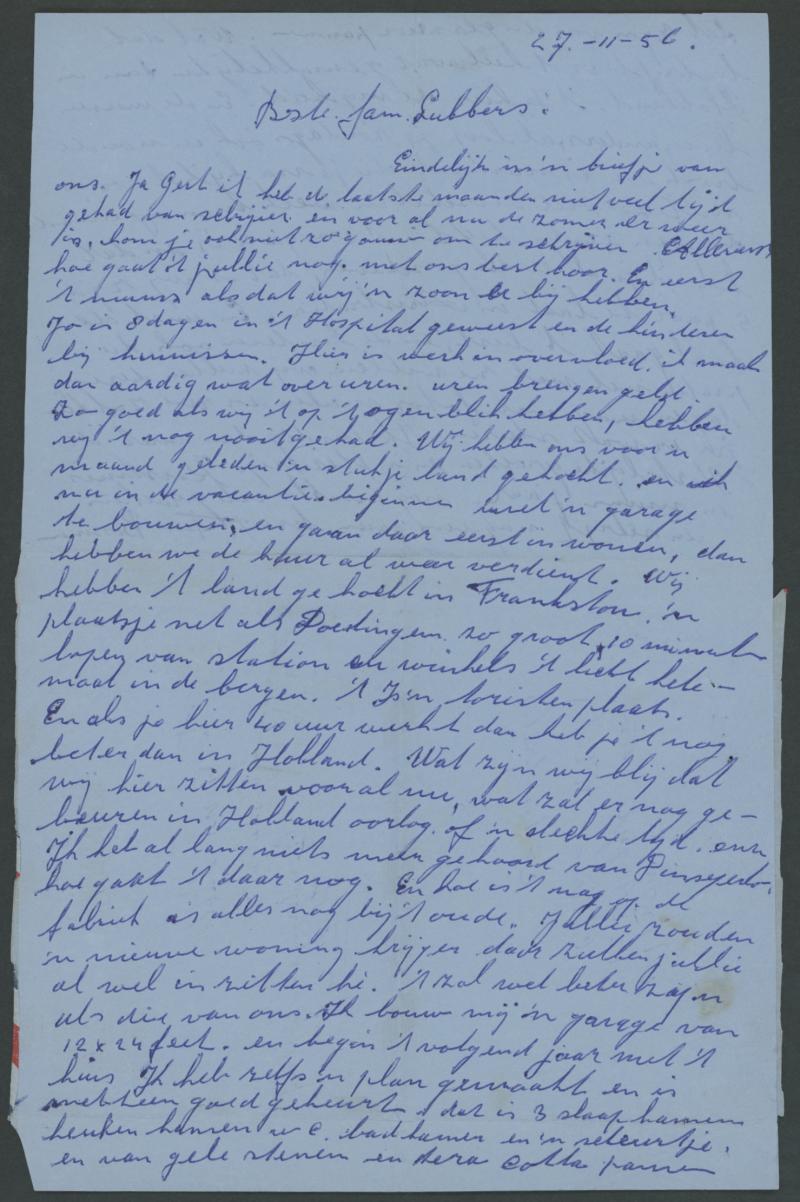 27-11-56.
Beste fam. Lubbers.
Eindelijk is 'n briefje van
ons. Ja Gert ik heb de laatste maanden niet veel tijd
gehad van schrijven en voor al nu de zomer er weer
is, kom je ook niet zo gauw om te schrijven. Allereerst
hoe gaat 't jullie nog. met ons best hoor. En eerst
't nieuws als dat wij 'n zoon er bij hebben.
Jo is 8 dagen in 't Hospital geweest en de kinderen
bij kennissen. Hier is werk in overvloed. ik maak
dan aardig wat overuren. uren brengen geld.
Zo goed als wij 't op 't ogenblik hebben, hebben
wij 't nog nooit gehad. Wij hebben ons voor 'n
maand geleden 'n stukje land gekocht. en ik
nu in de vacantie beginnen met 'n garage
te bouwen, en gaan daar eerst in wonen, dan
hebben we de huur al weer verdient. Wij
hebben 't land gekocht in Frankston. 'n
plaatsje net als zo groot, 10 minuten
lopen van station en winkels 't ligt hele-
maal in de bergen. 't Is 'n toristen plaats.
En als je hier 40 uur werkt dan heb je 't nog
beter dan in Holland. Wat zijn wij blij dat
wij hier zitten vooral nu, wat zal er nog ge-
beuren in Holland oorlog of 'n slechte tijd. enz
Ik heb al lang niets meer gehoord van
hoe gaat 't daar nog. En hoe is 't nog op de
fabriek is alles nog bij 't oude. Jullie zouden
'n nieuwe woning krijgen daar zullen jullie
al wel in zitten hè. 't zal wel beter zijn
als die van ons. Ik bouw mij 'n garage van
12 x 24 feet. en begin 't volgend jaar met 't
huis Ik heb zelfs 'n plan gemaakt en is
meteen goed gekeurt. dat is 3 slaapkamers
keuken kamer w c. badkamer en 'n
en van gele stenen en tera cotta pannen